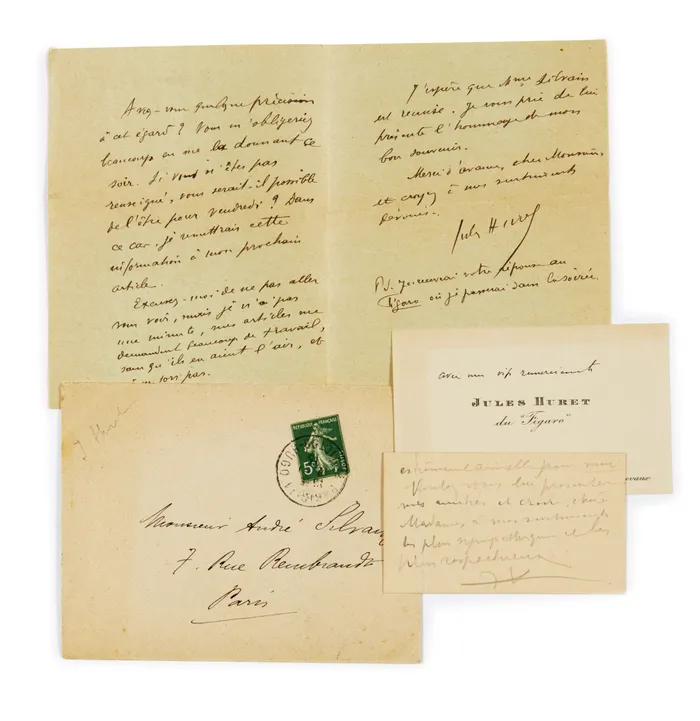 Avez-vous quelque précision
à cet égard ? Vous m'obligeriez
beaucoup en me la donnant ce
soir. Si vous n'êtes pas
renseigné, vous serait-il possible
de l'être pour vendredi ? Dans
ce cas, je remettrais cette
information à mon prochain
article.
Excusez-moi de ne pas aller
vous voir, mais je n'ai pas
une minute, mes articles me
demandent beaucoup de travail,
sans qu'ils en aient l'air, et
pas.
J'espère que Mme Silvain
est remise. Je vous prie de lui
présenter l'hommage de mon
bon souvenir.
Merci d'avance, cher Monsieur,
et croyez à mes sentiments
dévoués.
Jules Huret
P.S. je recevrai votre réponse au
Figaro où je passerai dans la soirée.
avec mes vifs remerciements
JULES HURET
du "Figaro"
J Huret
REPUBLIQUE FRANÇAISE
5c
POSTES
Monsieur André Silvain
7. Rue Rembrandt
Paris
pour moi
Voulez vous lui présenter
mes amitiés et croire, chère
Madame, à mes sentiments
les plus sympathiques et les
plus respectueux